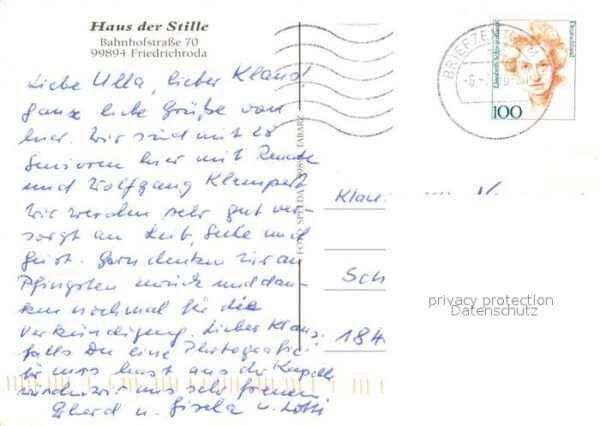 Haus der Stille
Bahnhofstraße 70
99894 Friedrichroda
Liebe Ulla, lieber Klaus!
ganz liebe Grüße von
hier. Wir sind mit 28
Senioren hier mit Renate
und Wolfgang Klempert
Wir werden sehr gut ver-
sorgt an Leib, Seele und
Geist. Gern denken wir an
Pfingsten zurück und dan-
ken nochmal für die
Verkündigung. Lieber Klaus,
falls Du eine Photografie
für uns hast aus der Kapelle
würden wir uns sehr freuen
Gisela u. Lotti
FOTO SPELDA 99891 TABARZ
BRIEFZENT
Elisabeth Schwarzhaupt
Deutschland
100
Klau
Sch
184
privacy protection
Datenschutz